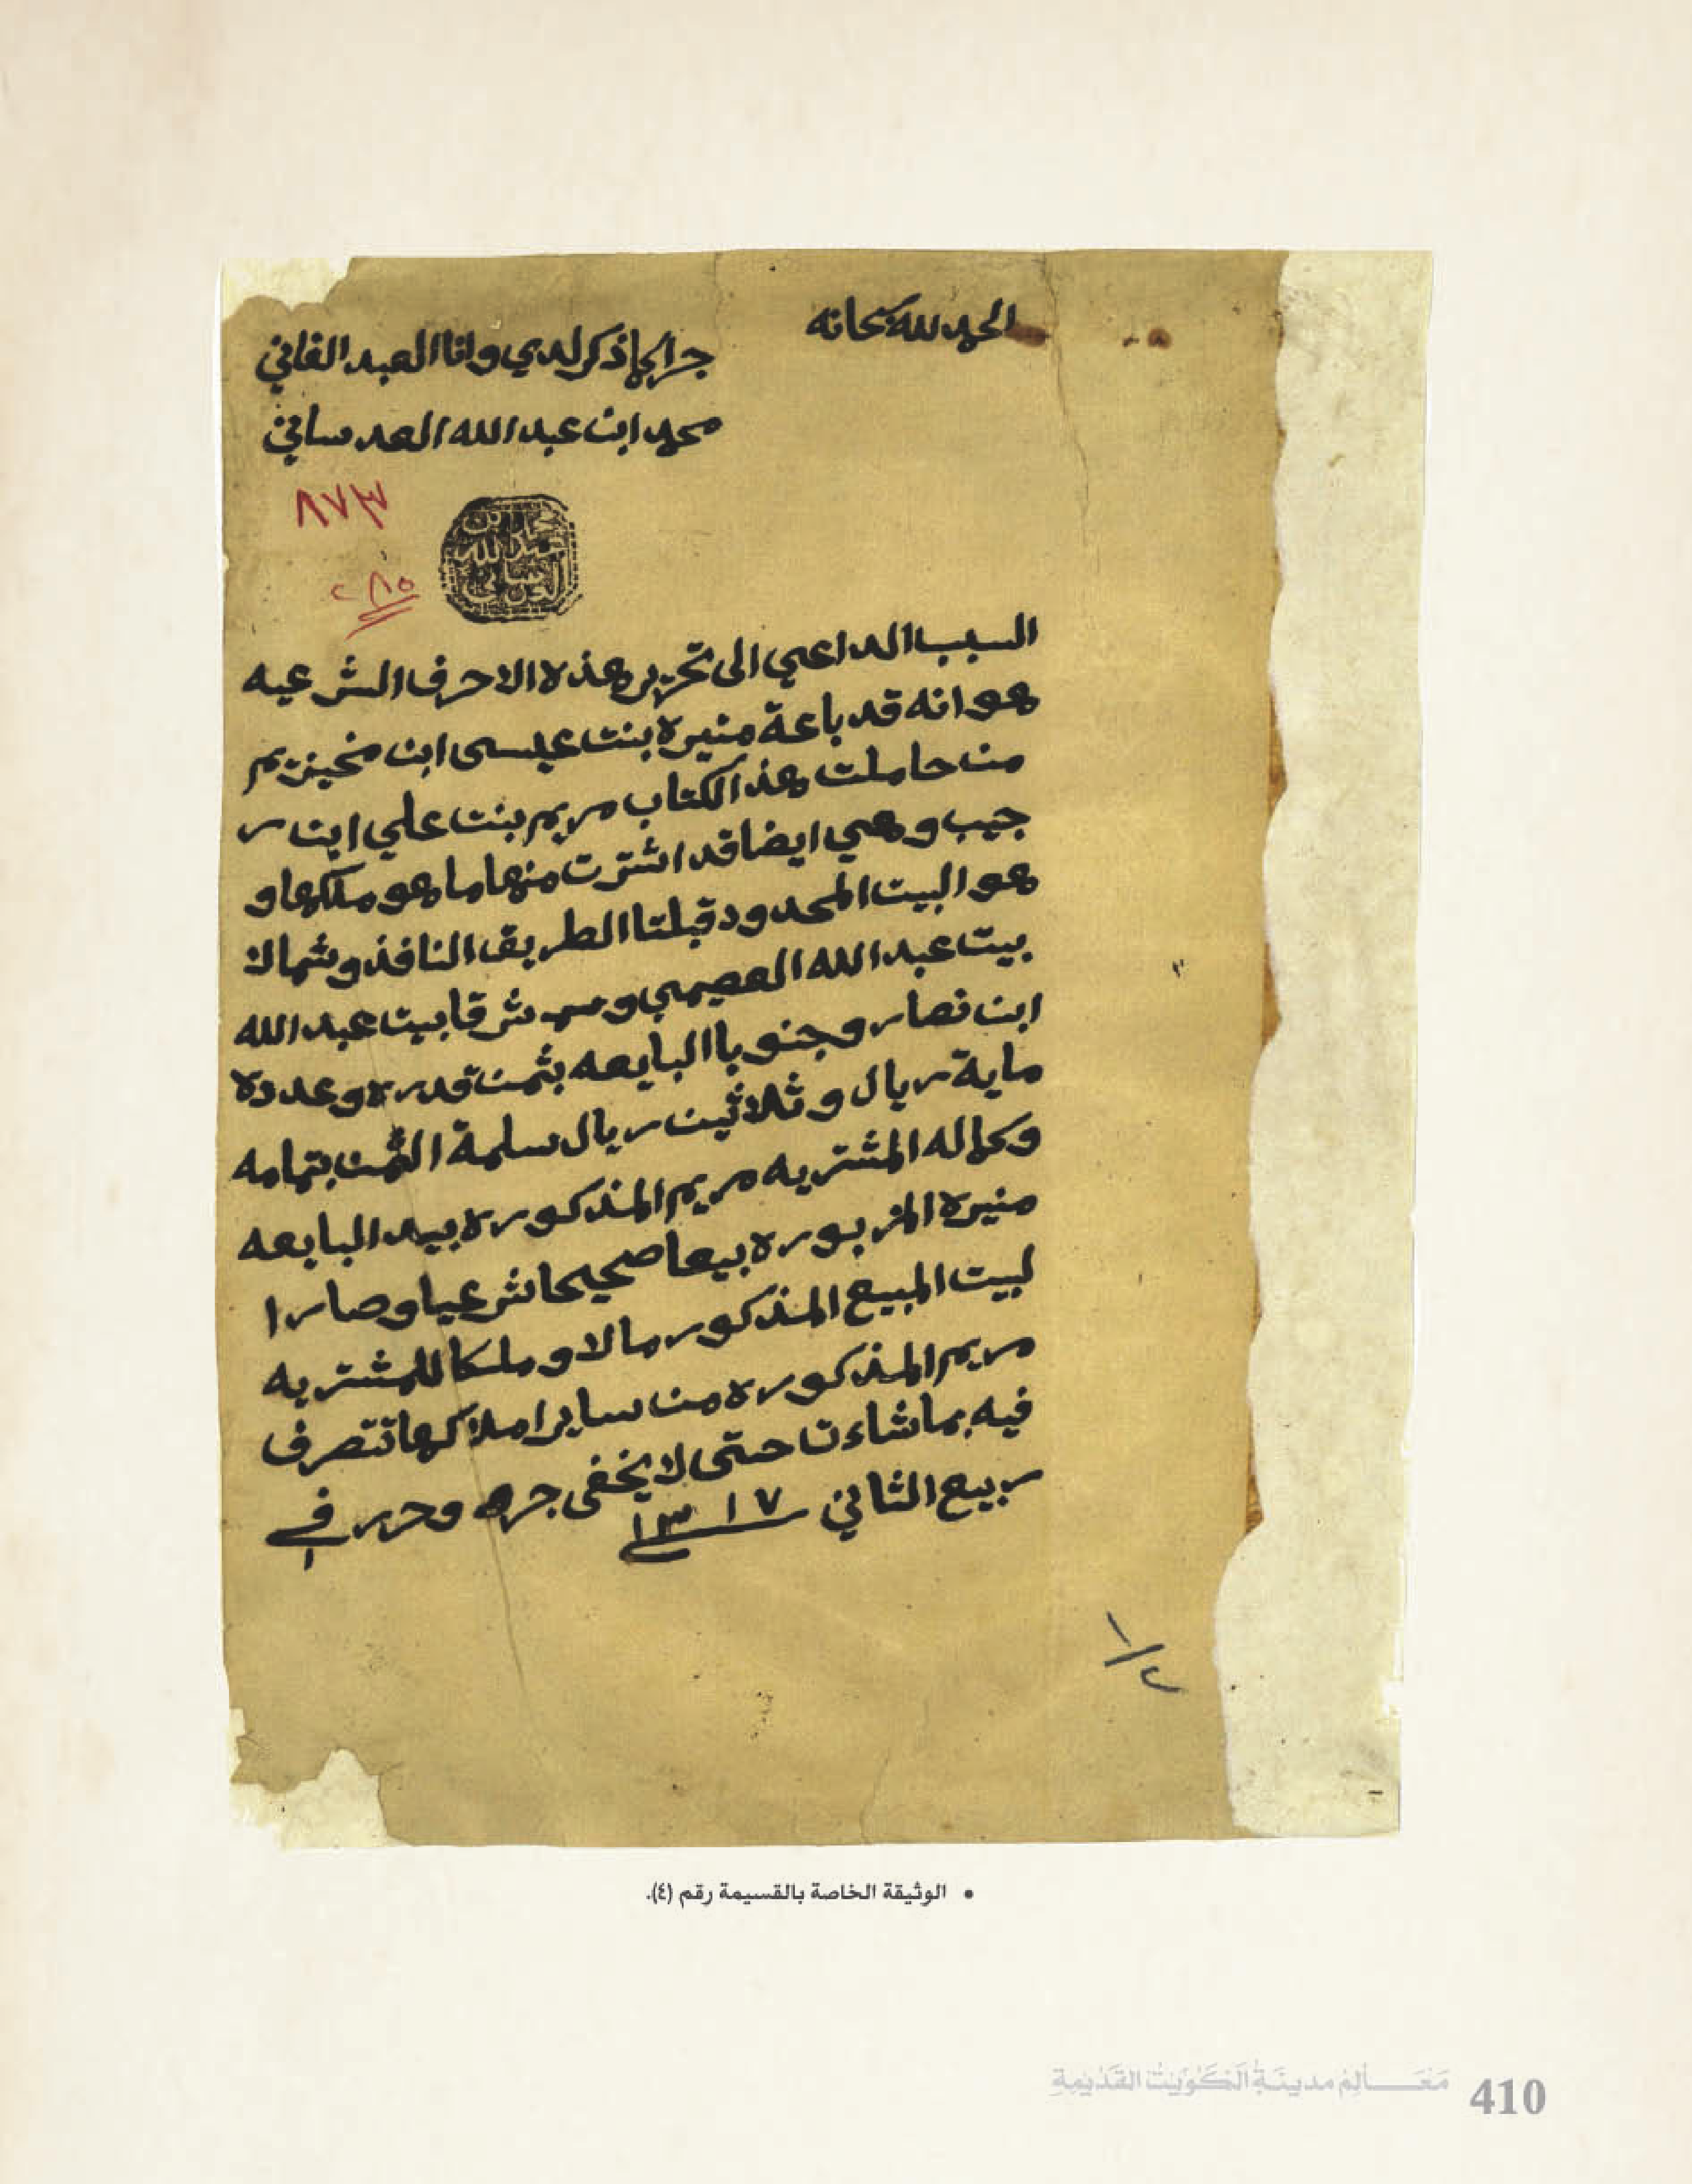 الحمد لله سبحانه
جرا بما ذكر لدي وانا العبد الفاني
محمد ابن عبد الله العدساني
٨٧٣
٢٨٥
محمد بن
عبد الله
العدساني
السبب الداعي الى تحرير هذه الاحرف الشرعيه
هو انه قد باعة منيرة بنت عيسى ابن مخيزيم
من حاملت هذا الكتاب مريم بنت علي ابن ر
جيب وهي ايضا قد اشترت منها ما هو ملكها و
هو البيت المحدود قبلتا الطريق النافذ وشمالا
بيت عبد الله العصيمي و شرقا بيت عبد الله
ابن نصار وجنوبا البايعه بثمن قدره وعدده
ماية ريال وثلاثين ريال سلمة الثمن بتمامه
وكماله المشتريه مريم المذكوره بيد البايعه
منيرة المزبوره بيعا صحيحا شرعيا وصار ا
لبيت المبيع المذكور مالا وملكا للمشتريه
مريم المذكوره من ساير املاكها تتصرف
فيه بما شاءت حتى لا يخفى جره وحرر في ١
ربيع الثاني ١٣١٧
١/٢
• الوثيقة الخاصة بالقسيمة رقم (٤).
مَعَالِم مدينَة الكوَيت القَديمة 410